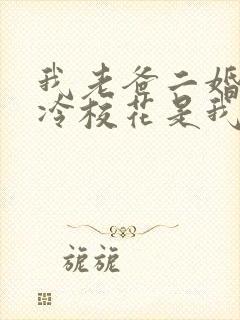 我老爸二婚
冷校花是我
旎旎